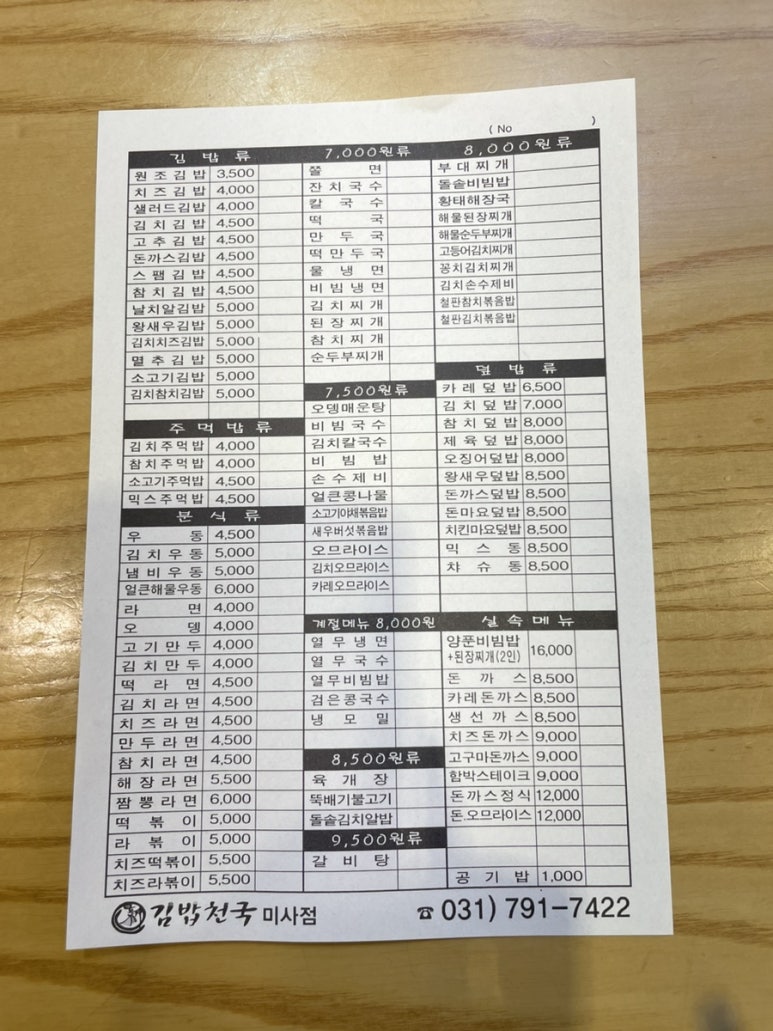 ( No )
김 밥 류
원조김밥 3,500
치즈김밥 4,000
샐러드김밥 4,000
김치김밥 4,500
고추김밥 4,500
돈까스김밥 4,500
스팸김밥 4,500
참치김밥 4,500
날치알김밥 5,000
왕새우김밥 5,000
김치치즈김밥 5,000
멸추김밥 5,000
소고기김밥 5,000
김치참치김밥 5,000
주 먹 밥 류
김치주먹밥 4,000
참치주먹밥 4,000
소고기주먹밥 4,500
믹스주먹밥 4,500
분 식 류
우 동 4,500
김치우동 5,000
냄비우동 5,000
얼큰해물우동 6,000
라 면 4,000
오 뎅 4,000
고기만두 4,000
김치만두 4,000
떡 라 면 4,500
김치라면 4,500
치즈라면 4,500
만두라면 4,500
참치라면 4,500
해장라면 5,500
짬뽕라면 6,000
떡 볶 이 5,000
라 볶 이 5,000
치즈떡볶이 5,500
치즈라볶이 5,500
7,000원류
쫄 면
잔치국수
칼 국 수
떡 국
만 두 국
떡만두국
물 냉 면
비빔냉면
김치찌개
된장찌개
참치찌개
순두부찌개
7,500원류
오뎅매운탕
비빔국수
김치칼국수
비 빔 밥
손수제비
얼큰콩나물
소고기야채볶음밥
새우버섯볶음밥
오므라이스
김치오므라이스
카레오므라이스
계절메뉴 8,000원
열무냉면
열무국수
열무비빔밥
검은콩국수
냉 모 밀
8,500원류
육 개 장
뚝배기불고기
돌솥김치알밥
9,500원류
갈 비 탕
8,000원류
부대찌개
돌솥비빔밥
황태해장국
해물된장찌개
해물순두부찌개
고등어김치찌개
꽁치김치찌개
김치손수제비
철판참치볶음밥
철판김치볶음밥
덮 밥 류
카레덮밥 6,500
김치덮밥 7,000
참치덮밥 8,000
제육덮밥 8,000
오징어덮밥 8,000
왕새우덮밥 8,500
돈까스덮밥 8,500
돈마요덮밥 8,500
치킨마요덮밥 8,500
믹 스 동 8,500
챠 슈 동 8,500
실 속 메 뉴
양푼비빔밥
+된장찌개(2인) 16,000
돈 까 스 8,500
카레돈까스 8,500
생선까스 8,500
치즈돈까스 9,000
고구마돈까스 9,000
함박스테이크 9,000
돈까스정식 12,000
돈.오므라이스 12,000
공 기 밥 1,000
김밥천국 미사점
☎ 031) 791-7422